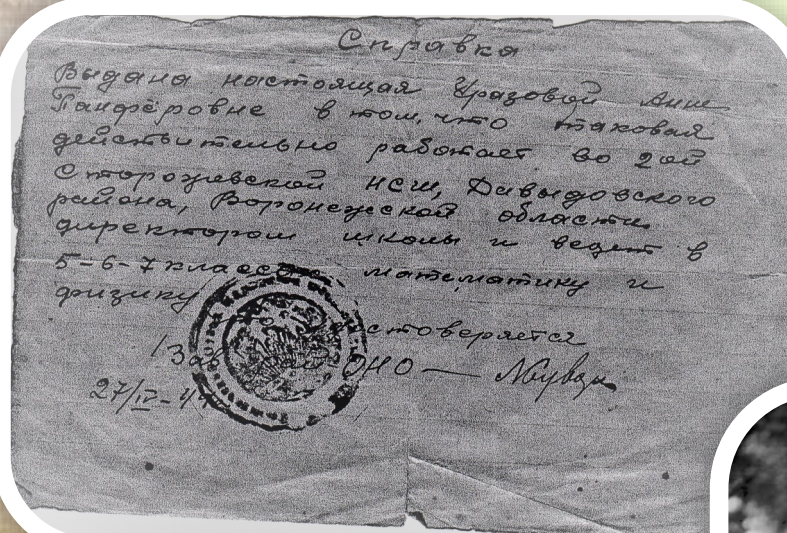 Справка
Выдана настоящая Уразовой Анне
Панфёровне в том, что таковая
действительно работает во 2ой
Сторожевской НСШ, Давыдовского
района, Воронежской области
директором школы и ведёт в
5-6-7 классах математику и
физику
удостоверяется
/Зав ОНО —
27/IV-44